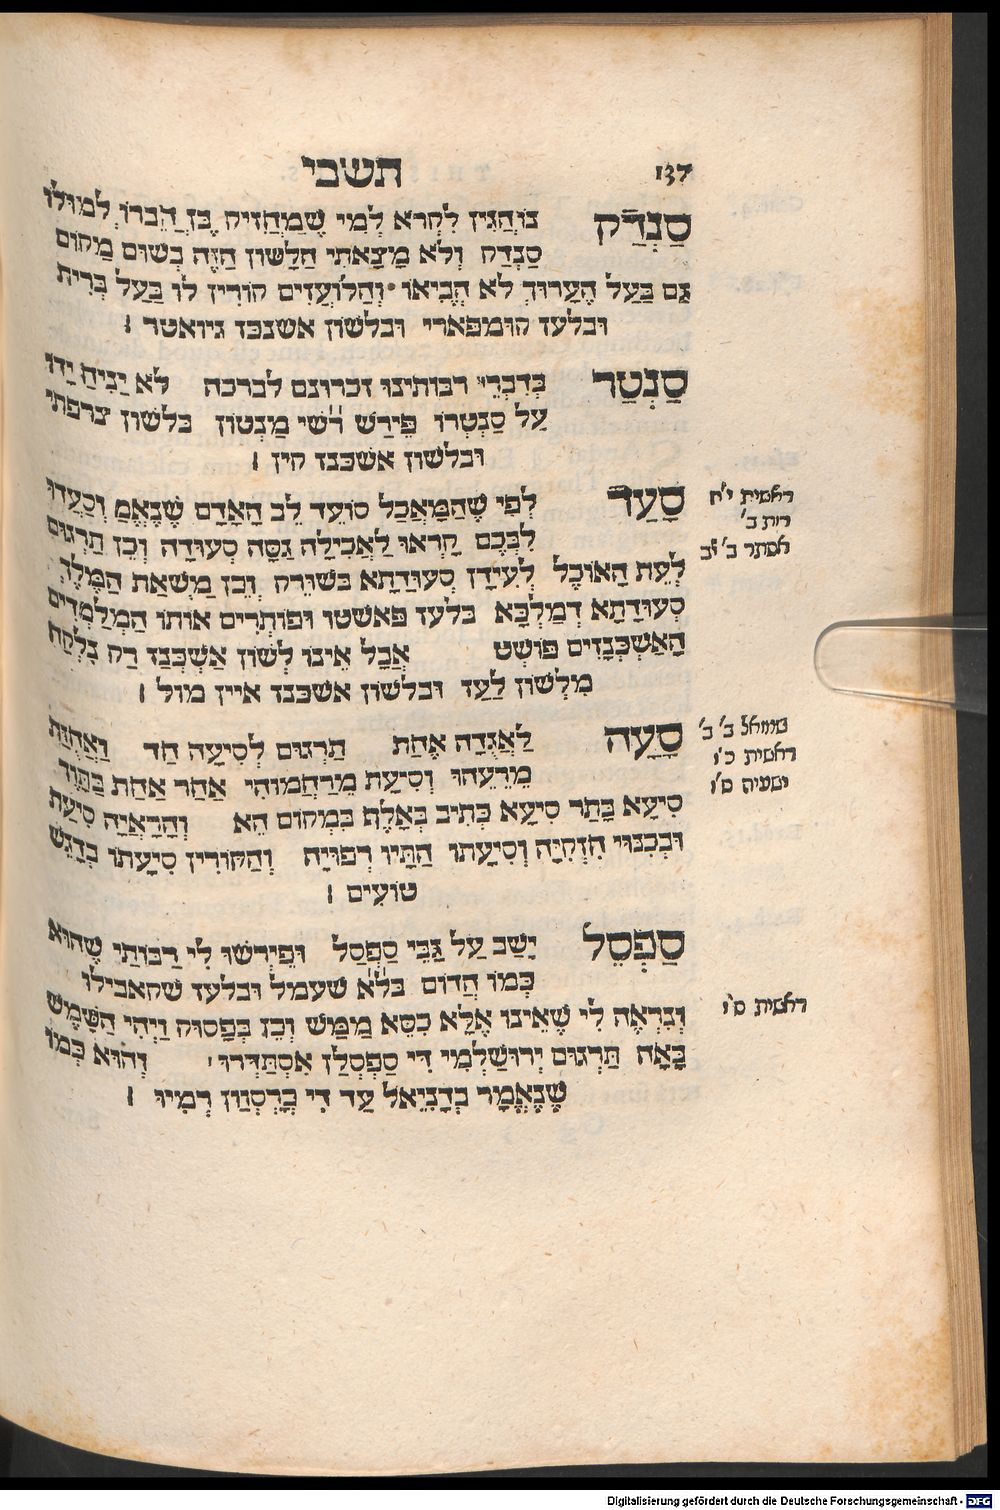 תשבי 137
סַנְדַּק נוֹהֲגִין לִקְרֹא לְמִי שֶׁמַחֲזִיק בֶּן חֲבֵרוֹ לְמוּלוֹ
סַנְדַּק וְלֹא מָצָאתִי הַלָּשׁוֹן הַזֶּה בְּשׁוּם מָקוֹם
גַּם בַּעַל הֶעָרוּךְ לֹא הֱבִיאוֹ וְהַלּוֹעֲזִים קוֹרִין לוֹ בַּעַל בְּרִית
ובלעז קומפארי ובלשון אשכנז גיואטר ׃
סַנְטַר בְּדִבְרֵי רבותינו זכרונם לברכה לֹא יַנִּיחַ יָדוֹ
עַל סַנְטְרוֹ פֵּירַשׁ רַ״שִׁי מִנְטוֹן בלשון צרפתי
ובלשון אשכנז קין ׃
סָעַד לְפִי שֶׁהַמַּאֲכָל סוֹעֵד לֵב הָאָדָם שֶׁנֶּאֱמַ וְסַעֲדוּ
לִבְּכֶם קָרְאוּ לַאֲכִילָה גַּסָּה סְעוּדָה וְכֵן תַּרְגּוּם
לְעֵת הָאוֹכֶל לְעִידָן סְעוּדָתָא בשורק וְכֵן מַשְׂאַת הַמֶּלֶךְ
סְעוּדָתָא דְמַלְכָּא בלעז פאשטו וּפוֹתְרִים אוֹתוֹ הַמְלַמְּדִים
הָאַשְׁכְּנָזִים פּוֹשְׁט אֲבָל אֵינוֹ לְשׁוֹן אַשְׁכְּנַז רַק נִלְקַח
מִלְּשׁוֹן לַעַז ובלשון אשכנז איין מול ׃
סָעָה לַאֲגֻדָּה אֶחָת תַּרְגּוּם לְסִיעָה חַד וַאֲחֻזַּת
מֵרֵעֵהוּ וְסִיעַת מֵרַחֲמוֹהִי אַחַר אַחַת בַּתָּוֶךְ
סִיעָא בָּתַר סִיעָא כְּתִיב בְּאָלֶף בִּמְקוֹם הֵא וְהָרְאָיָה סִיעַת
וּבְכִנּוּי חִזְקִיָּה וְסִיעָתוֹ הַתָּיו רְפוּיָה וְהַקּוֹרִין סִיעָתּוֹ בְּדָגֵשׁ
טוֹעִים ׃
סַפְסֵל יָשַׁב עַל גַּבֵּי סַפְסַל וּפֵירְשׁוּ לִי רַבּוֹתַי שֶׁהוּא
כְּמוֹ הֲדוֹם בל״א שעמל ובלעז שקאבילו
וְנִרְאֶה לִי שֶׁאֵינוֹ אֶלָּא כִּסֵּא מַמָּשׁ וְכֵן בְּפָסוּק וַיְהִי הַשֶּׁמֶשׁ
בָּאָה תַּרְגּוּם יְרוּשַׁלְמִי דִי סַפְסְלַן אִסְתַּדְּרוּ וְהוּא כְּמוֹ
שֶׁנֶּאֱמָר בְּדָנִיֵּאל עַד דִּי כָרְסָוָן רְמִיו ׃
ראשית י״ח
רות ב׳
אסתר ב׳ יב
שמואל ב׳ ב׳
ראשית כ״ו
ישעיה ס״ו
ראשית ט״ו
Digitalisierung gefördert durch die Deutsche Forschungsgemeinschaft - DFG